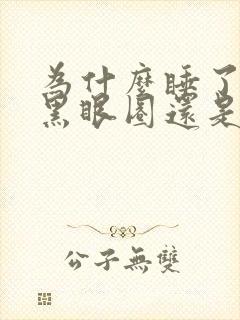 為什麼睡了
黑眼圈還是
公子無雙